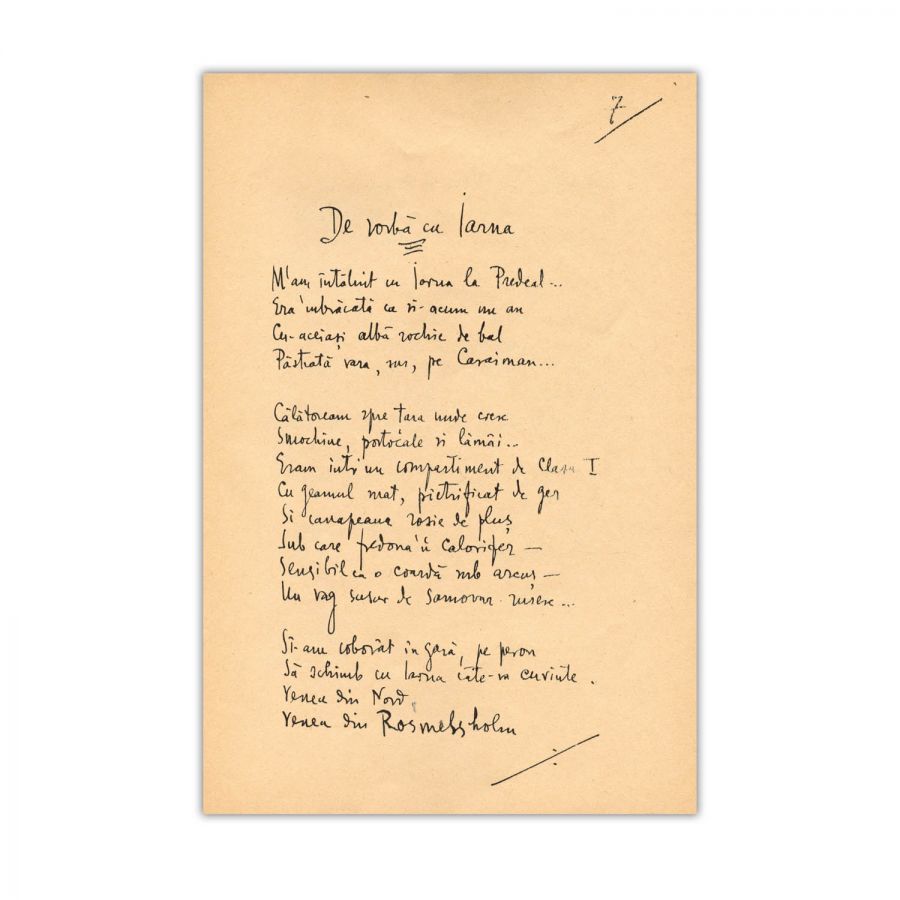 7
De vorbă cu Iarna
M'am întâlnit cu Iarna la Predeal...
Era 'mbrăcată ca și-acum un an
Cu-aceiași albă rochie de bal
Păstrată vara, sus, pe Caraiman...
Călătoream spre țara unde cresc
Smochine, portocale și lămâi..
Eram într'un compartiment de Clasa I
Cu geamul mat, pietrificat de ger
Și canapeaua roșie de pluș
Sub care fredona 'n Calorifer —
Sensibil ca o coardă sub arcuș —
Un vag susur de Samovar rusesc...
Și-am coborât în gară, pe peron
Să schimb cu Iarna câte-va cuvinte.
Venea din Nord,
Venea din Rosmersholm